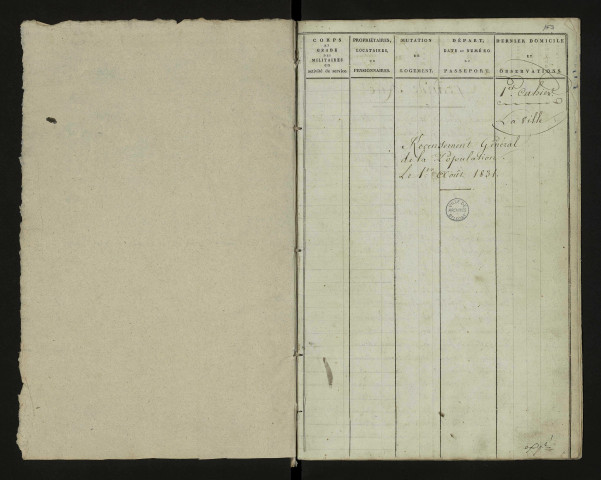 CORPS
ET
GRADE
DES
MILITAIRES
EN
activité de service
PROPRIÉTAIRES,
LOCATAIRES,
OU
PENSIONNAIRES.
MUTATION
DE
LOGEMENT.
DÉPART,
DATE ET NUMÉRO
DU
PASSEPORT.
DERNIER DOMICILE
ET
OBSERVATIONS.
1er Cahier
La Ville
Recensement Général
de la Population
Le 1er Août 1831.